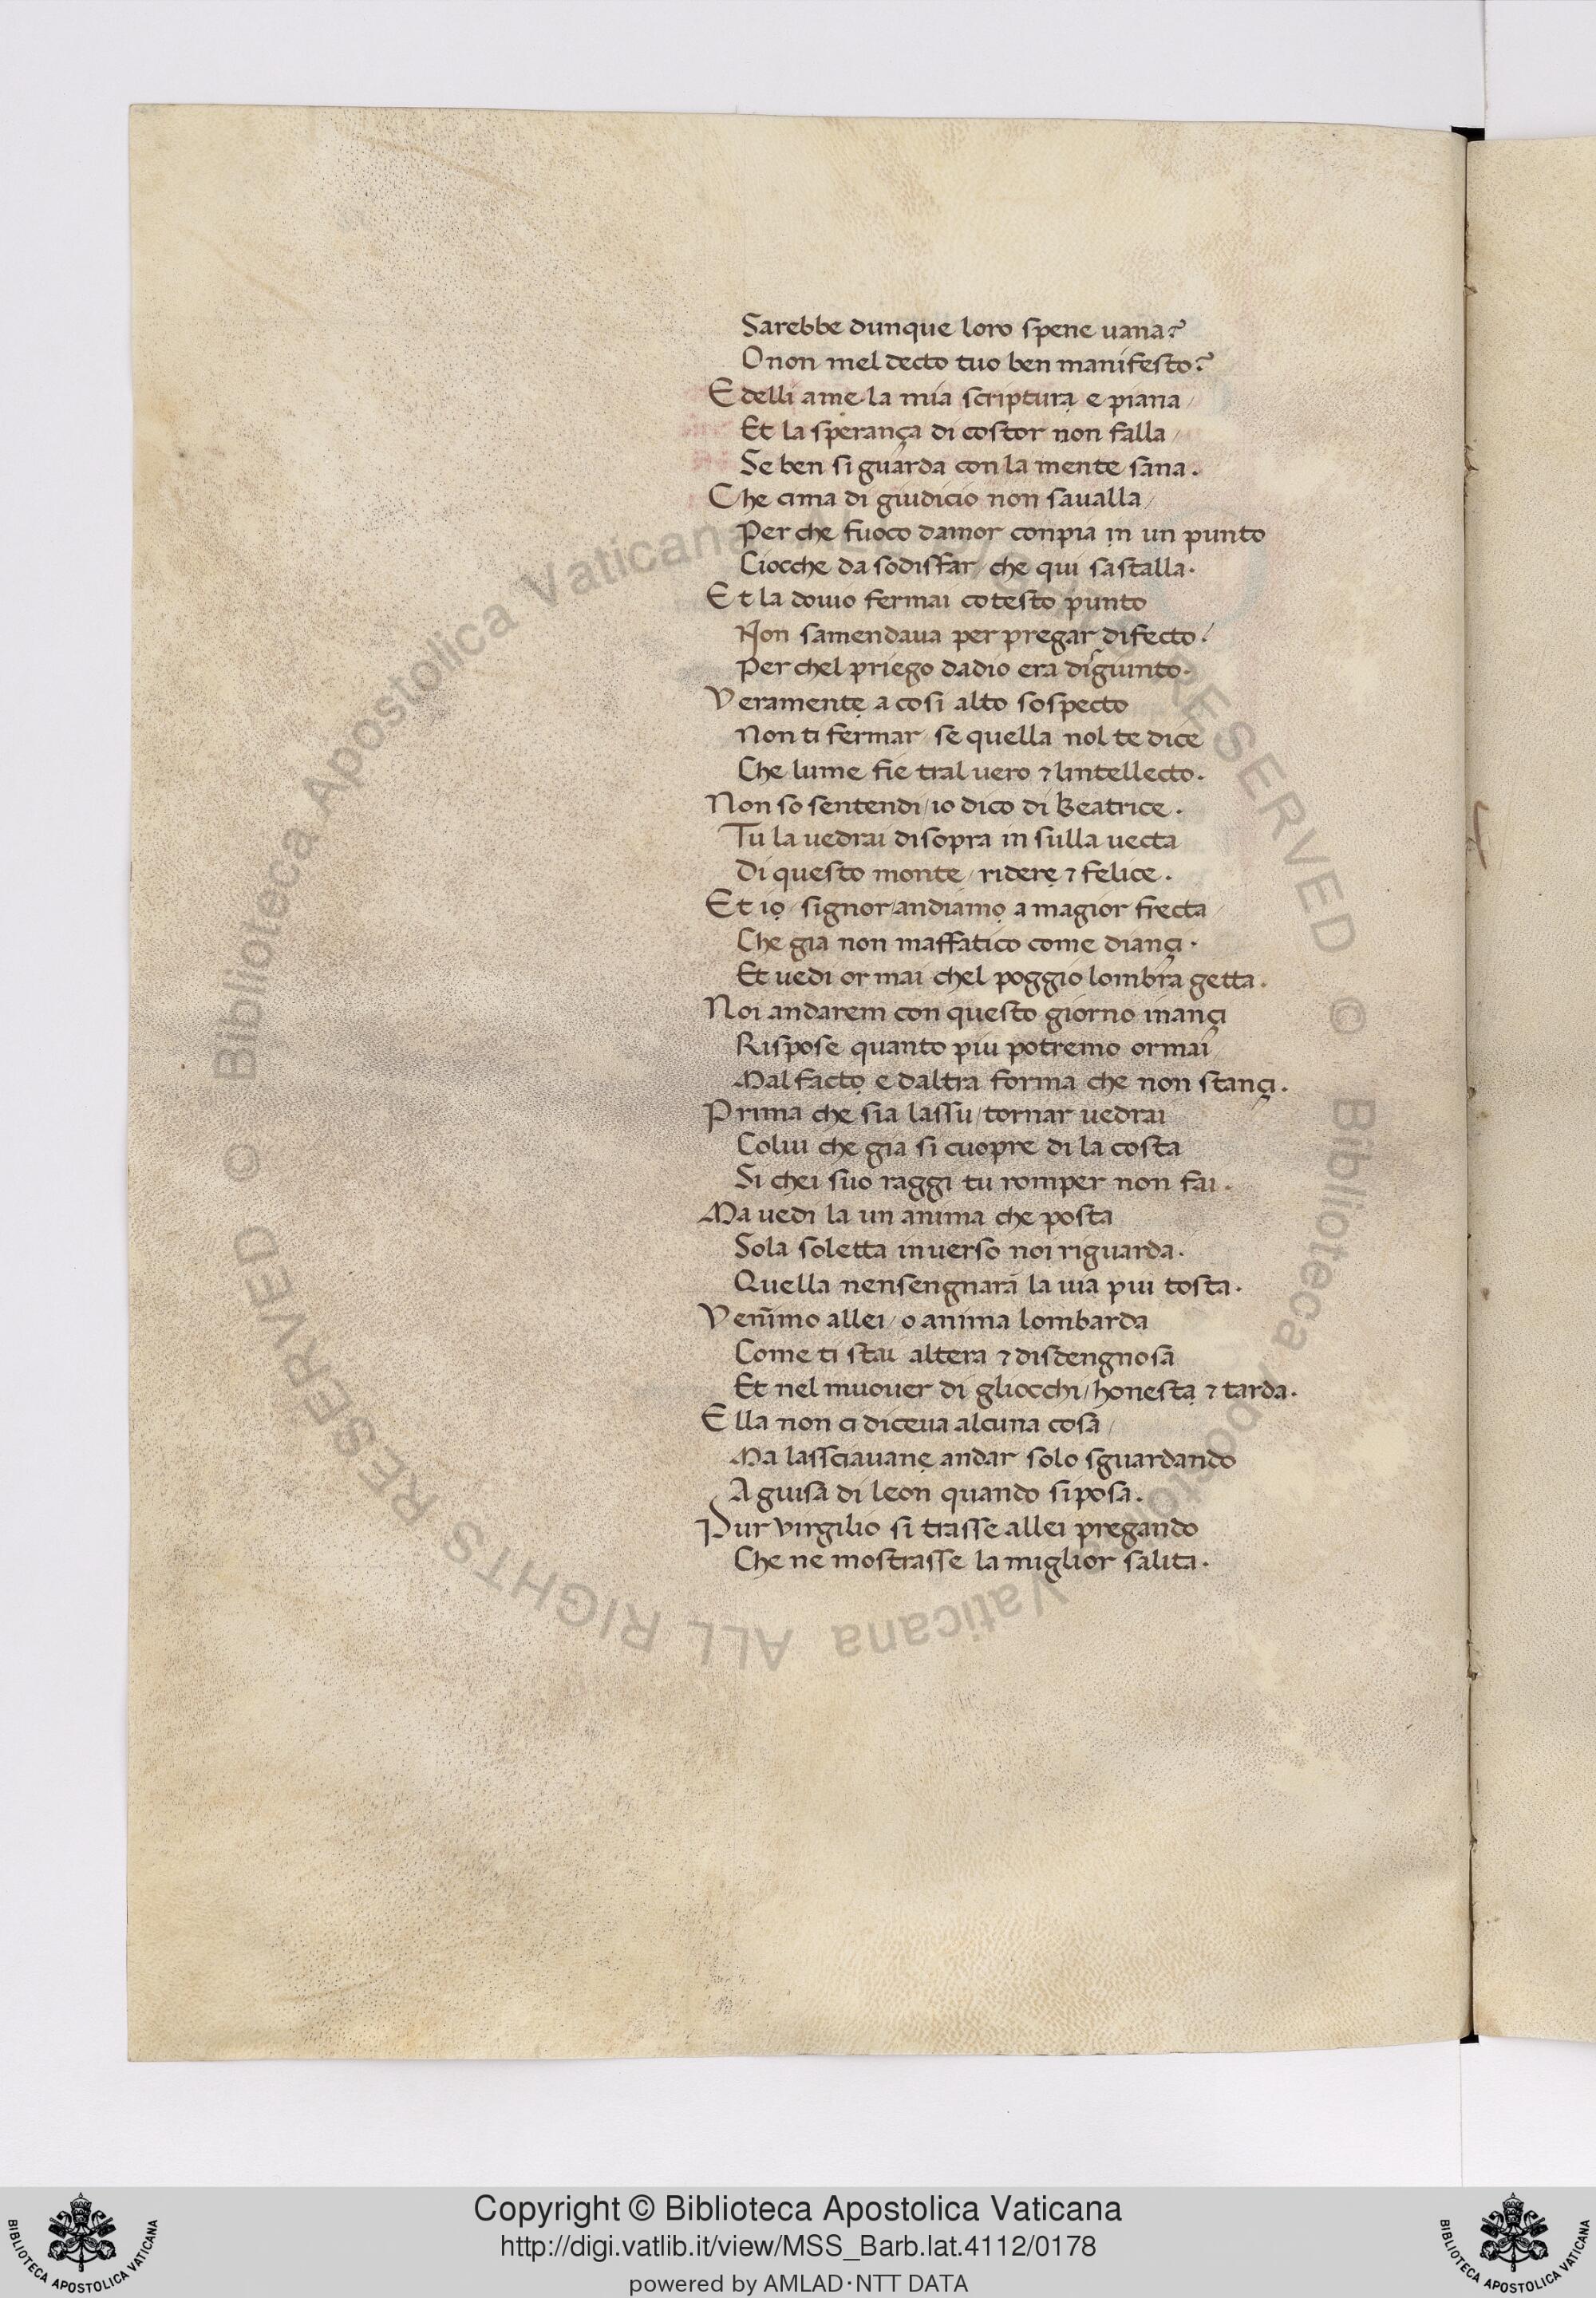 Sarebbe dunque loro spene uana?
O non mel decto tuo ben manifesto?
E delli ame·la mia scripturạ e piana/
Et la sperança di costor non falla/
Se ben si guarda con la mente sana.
Che cima di giudicio non saualla/
Per che fuoco damor conpia in un punto
Ciocche da sodisfar/che qui sastalla.
Et la douio fermai cotesto punto
Non samendaua per pregar difecto/
Per chel priego dadio era disgiunto.
Veramentẹ a cosi alto sospecto
Non ti fermar/se quella nol te dice
Che lume fie tral uero ⁊ lintellecto.
Non so sentendi/io dico di Beatrice.
Tu la uedrai disopra in sulla uecta
Di questo monte/riderẹ ⁊ felice.
Et iọ/signor/andiamọ a magior frecta/
Che gia non maffatico come diançi.
Et uedi or mai chel poggio lombra getta.
Noi andarem con questo giorno inançi
Rispose quanto piu potremo ormai/
Mal factọ e daltra forma che non stançi.
Prima che sia lassu/tornar uedrai
Colui che gia si cuopre di la costa
Si chei suo raggi tu romper non fai.
Ma uedi la un anima che posta
Sola soletta inuerso noi riguarda.
Quella nensengnara la uia piu tosta.
Venīmo allei/o anima lombarda
Come ti stai altera ⁊ disdengnosa
Et nel muouer di gliocchi/honestạ ⁊ tarda.
Ella non ci diceua alcuna cosa/
Ma lassciauanẹ andar solo sguardando
A guisa di leon quando si posa.
Pur virgilio si trasse allei pregando
Che ne mostrasse la miglior salita.
© Biblioteca Apostolica Vaticana ALL RIGHTS RESERVED © Biblioteca Apostolica Vaticana ALL RIGHTS RESERVED
Copyright © Biblioteca Apostolica Vaticana
http://digi.vatlib.it/view/MSS_Barb.lat.4112/0178
powered by AMLAD·NTT DATA
BIBLIOTECA APOSTOLICA VATICANA
BIBLIOTECA APOSTOLICA VATICANA